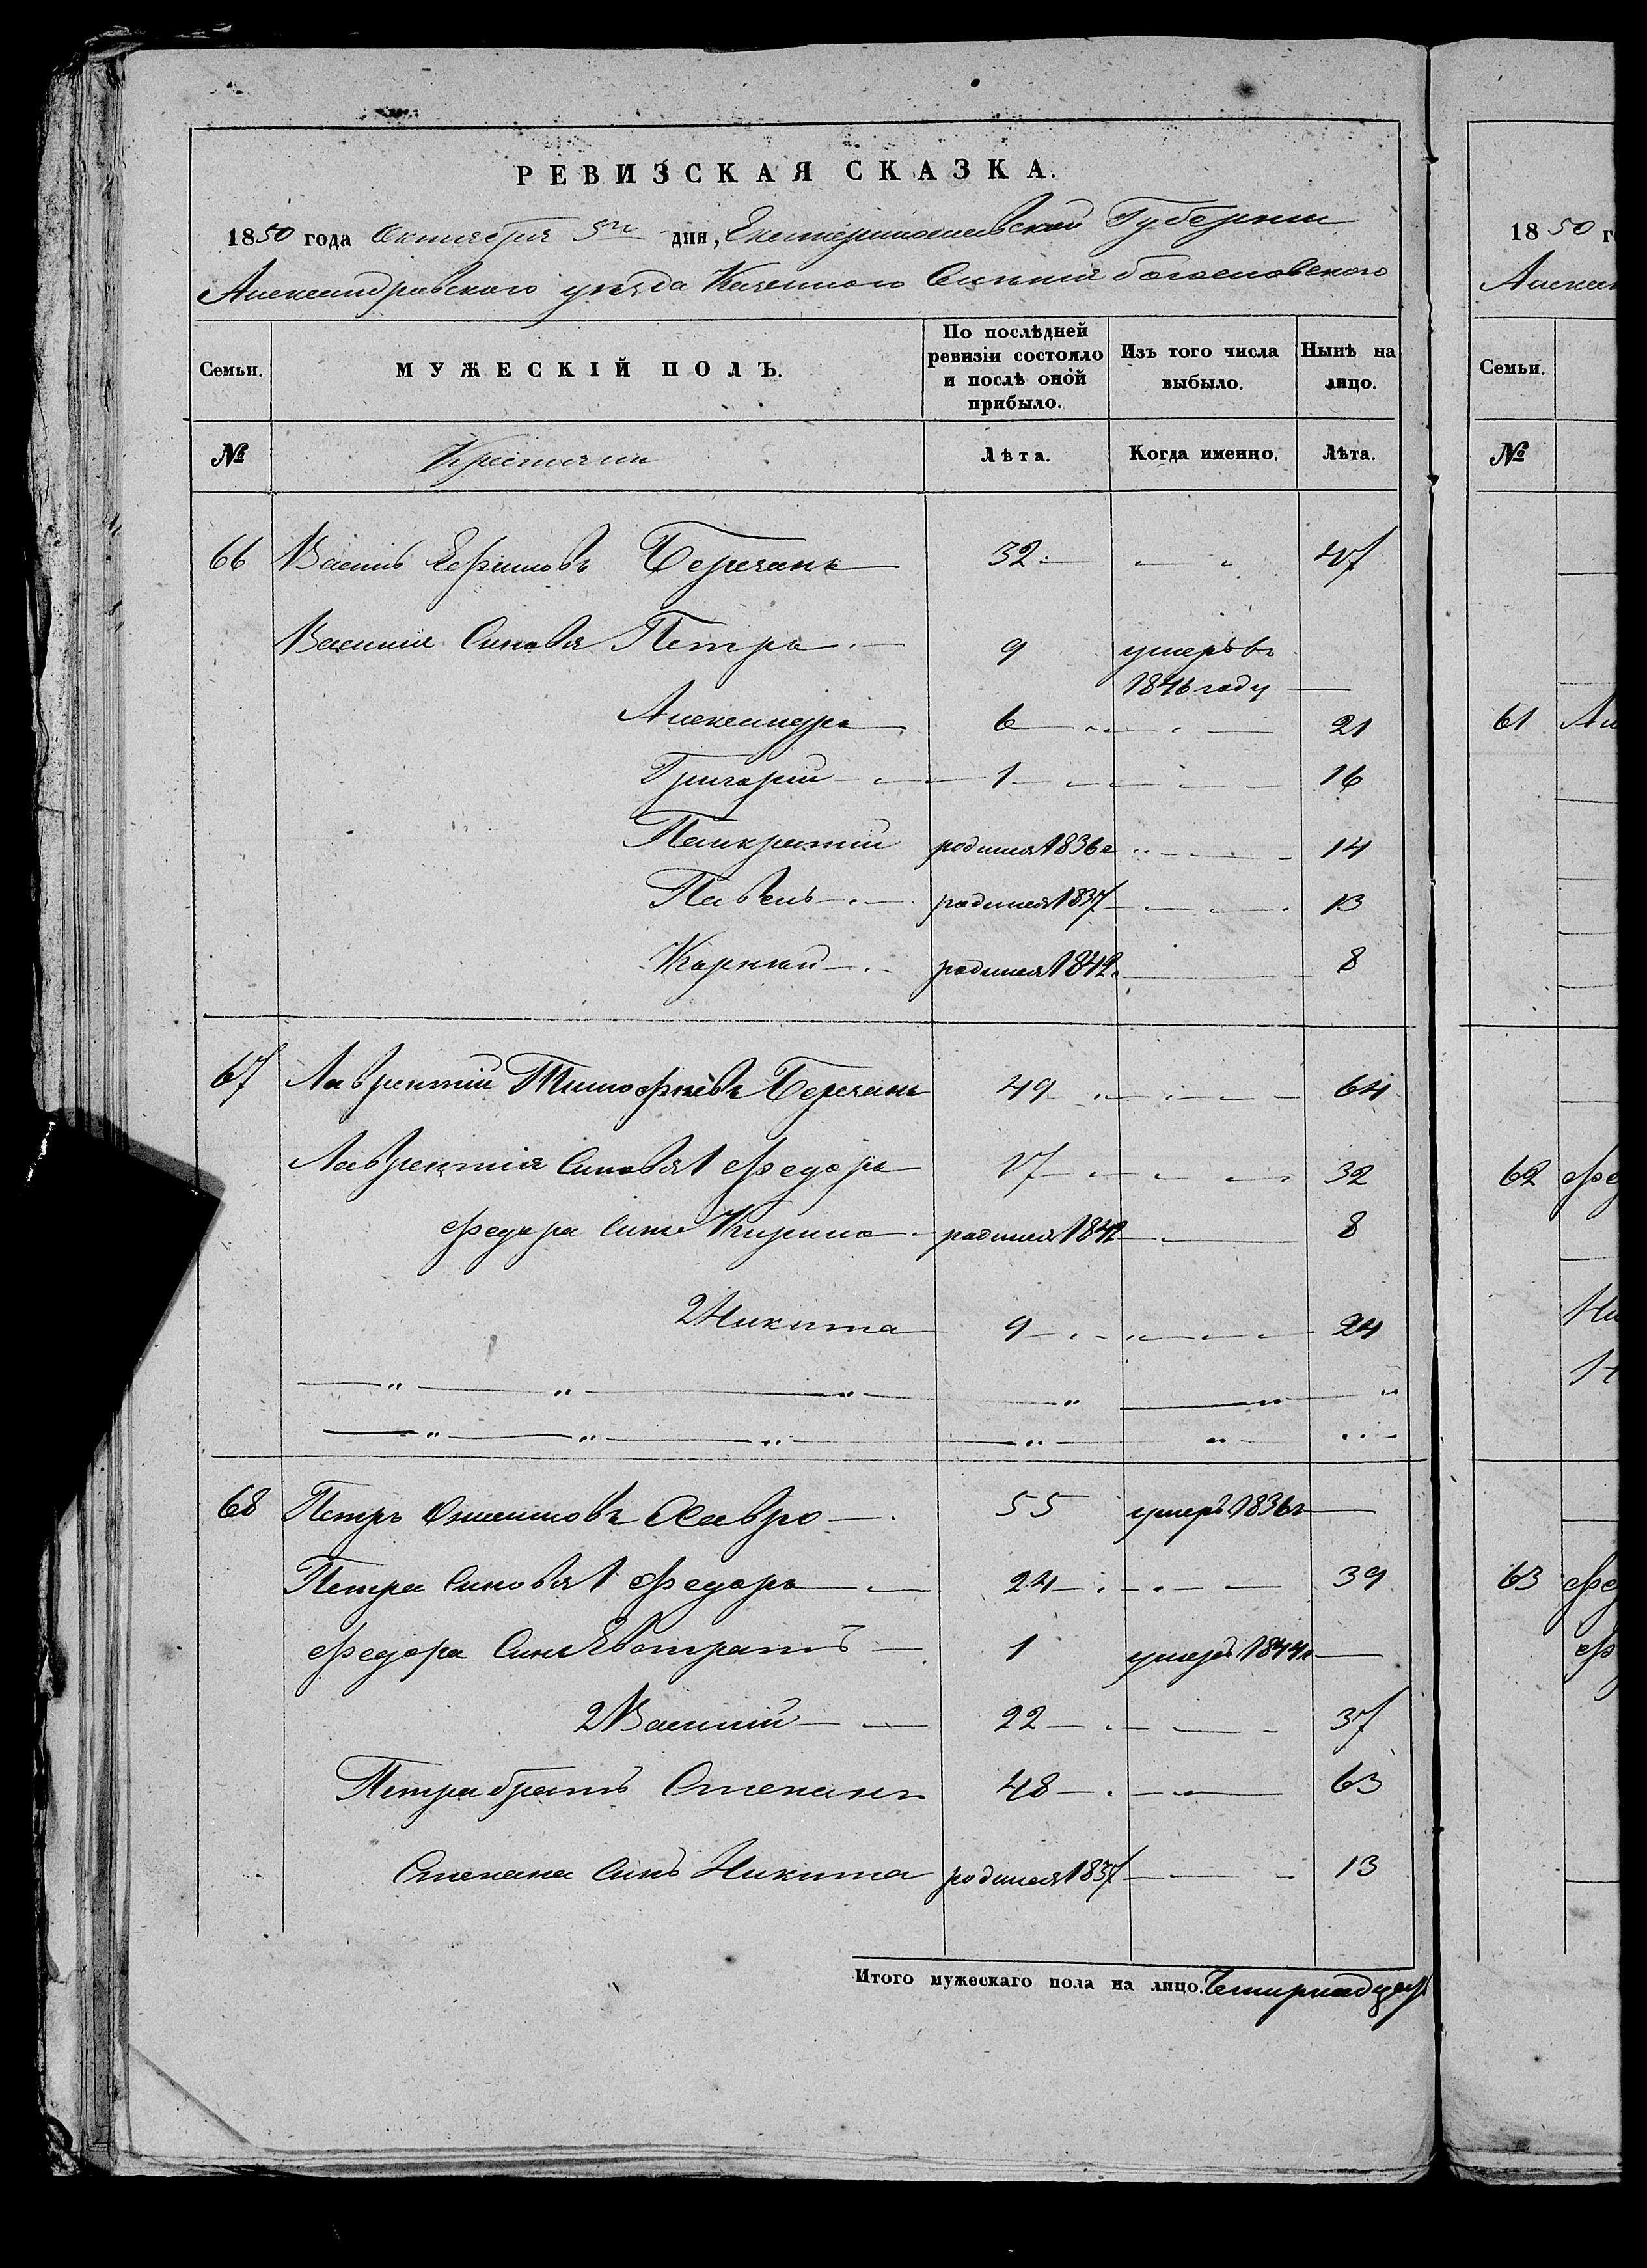 РЕВИЗСКАЯ СКАЗКА.
1850 года Октября 5го дня, Екатеринославской Губернии
Александровского уезда Казенного Селения богословского
Семьи. МУЖЕСКІЙ ПОЛЪ. По послѣдней ревизіи состояло и послѣ оной прибыло. Изъ того числа выбыло. Нынѣ на лицо.
№ Крестьяни Лѣта. Когда именно. Лѣта.
66 Василь Ефимовъ Беречанъ 32 47
Василия Синовя Петръ 9 умеръ въ 1846 году
Александръ 6 21
Григорий 1 16
Панкратий родился 1836г 14
Павелъ родился 1837 13
Карпий родился 1842г 8
67 Лаврентий Тимофѣевъ Беречанъ 49 64
Лаврентия Синовя 1 Федоръ 17 32
Федора Синъ Кирило родился 1842 8
2 Никита 9 24
68 Петръ Савро 55 умеръ 1836г
Петра Синовя 1 Федоръ 24 39
Федора Синъ Евстратъ 1 умеръ 1844г
2 Василий 22 37
Петра братъ Степанъ 48 63
Степана Синъ Никита родился 1837 13
Итого мужескаго пола на лицо. Четирнадцать
1850 г
Алексан
Семьи.
№
61 Ал
62 Фе
Ни
63 Фе
Ф